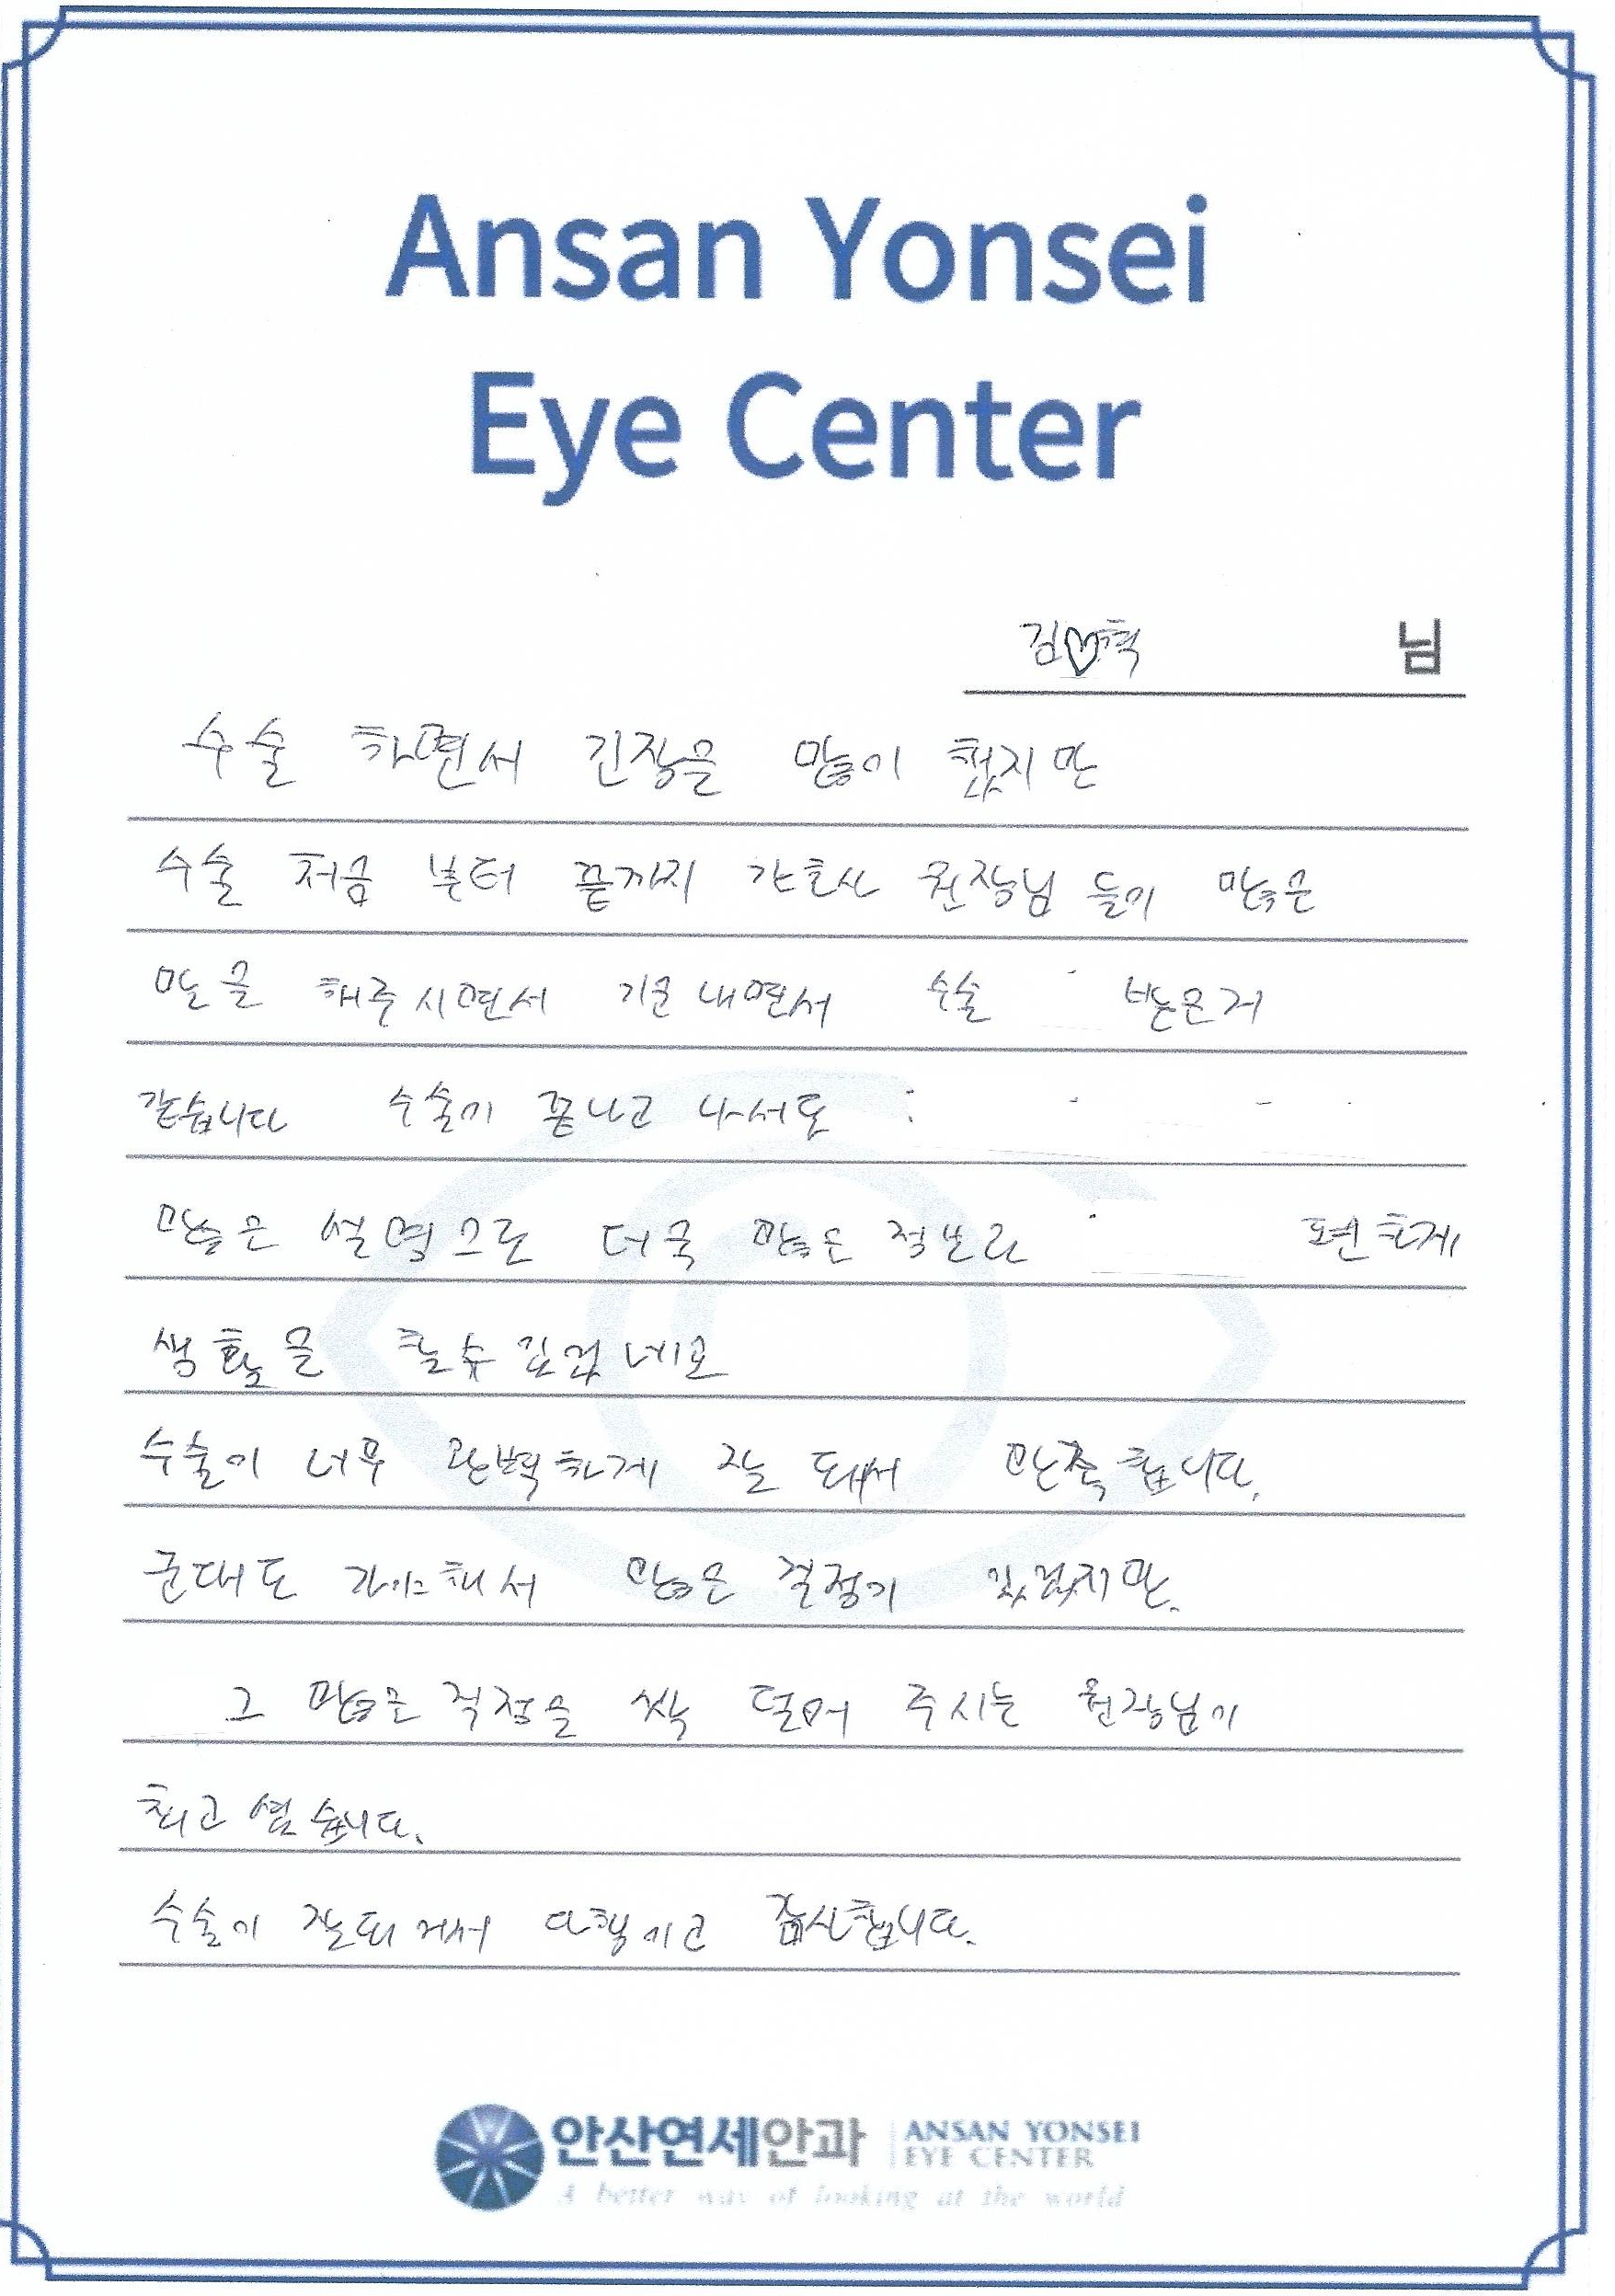 Ansan Yonsei
Eye Center
김♡혁 님
수술 하면서 긴장을 많이 했지만
수술 처음 부터 끝까지 간호사 원장님 들이 많은
말을 해주시면서 기운내면서 수술 받은거
같습니다 수술이 끝나고 나서도
많은 설명으로 더욱 많은 정보라 편하게
생활을 할수 있겠네요
수술이 너무 완벽하게 잘 되서 만족합니다.
군대도 가야해서 많은 걱정이 있었지만.
그 많은 걱정을 싹 덜어 주시는 원장님이
최고 였습니다.
수술이 잘되서 다행이고 감사합니다.
안산연세안과 ANSAN YONSEI
EYE CENTER
A better way of looking at the world